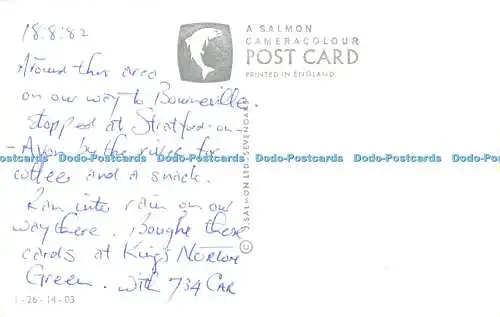 18:8:82
Around this area
on our way to Bourneville.
stopped at Stratford-on-
-Avon by the river for
coffee and a snack.
Ran into rain on our
way there. Boughe these
cards at Kings Norton
Green. with 734 CAR
1-26-14-03
A SALMON
CAMERACOLOUR
POST CARD
PRINTED IN ENGLAND
© J.SALMON LTD · SEVENOAKS
Dodo-Postcards Dodo-Postcards Dodo-Postcards Dodo-Postcards Dodo-Postcards Dodo-Postcards